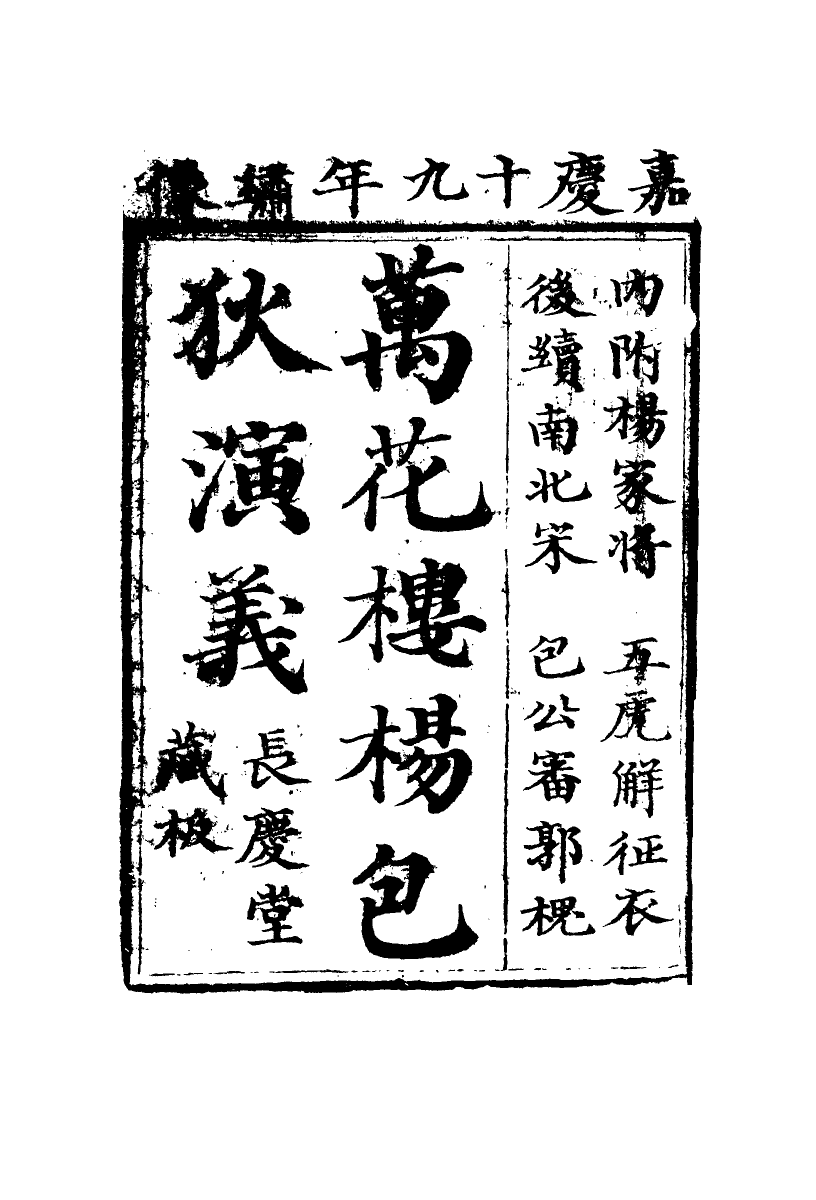 嘉慶十九年繡像
內附楊家將 五虎解征衣
後續南北宋 包公審郭槐
萬花樓楊包
狄演義
長慶堂
藏板